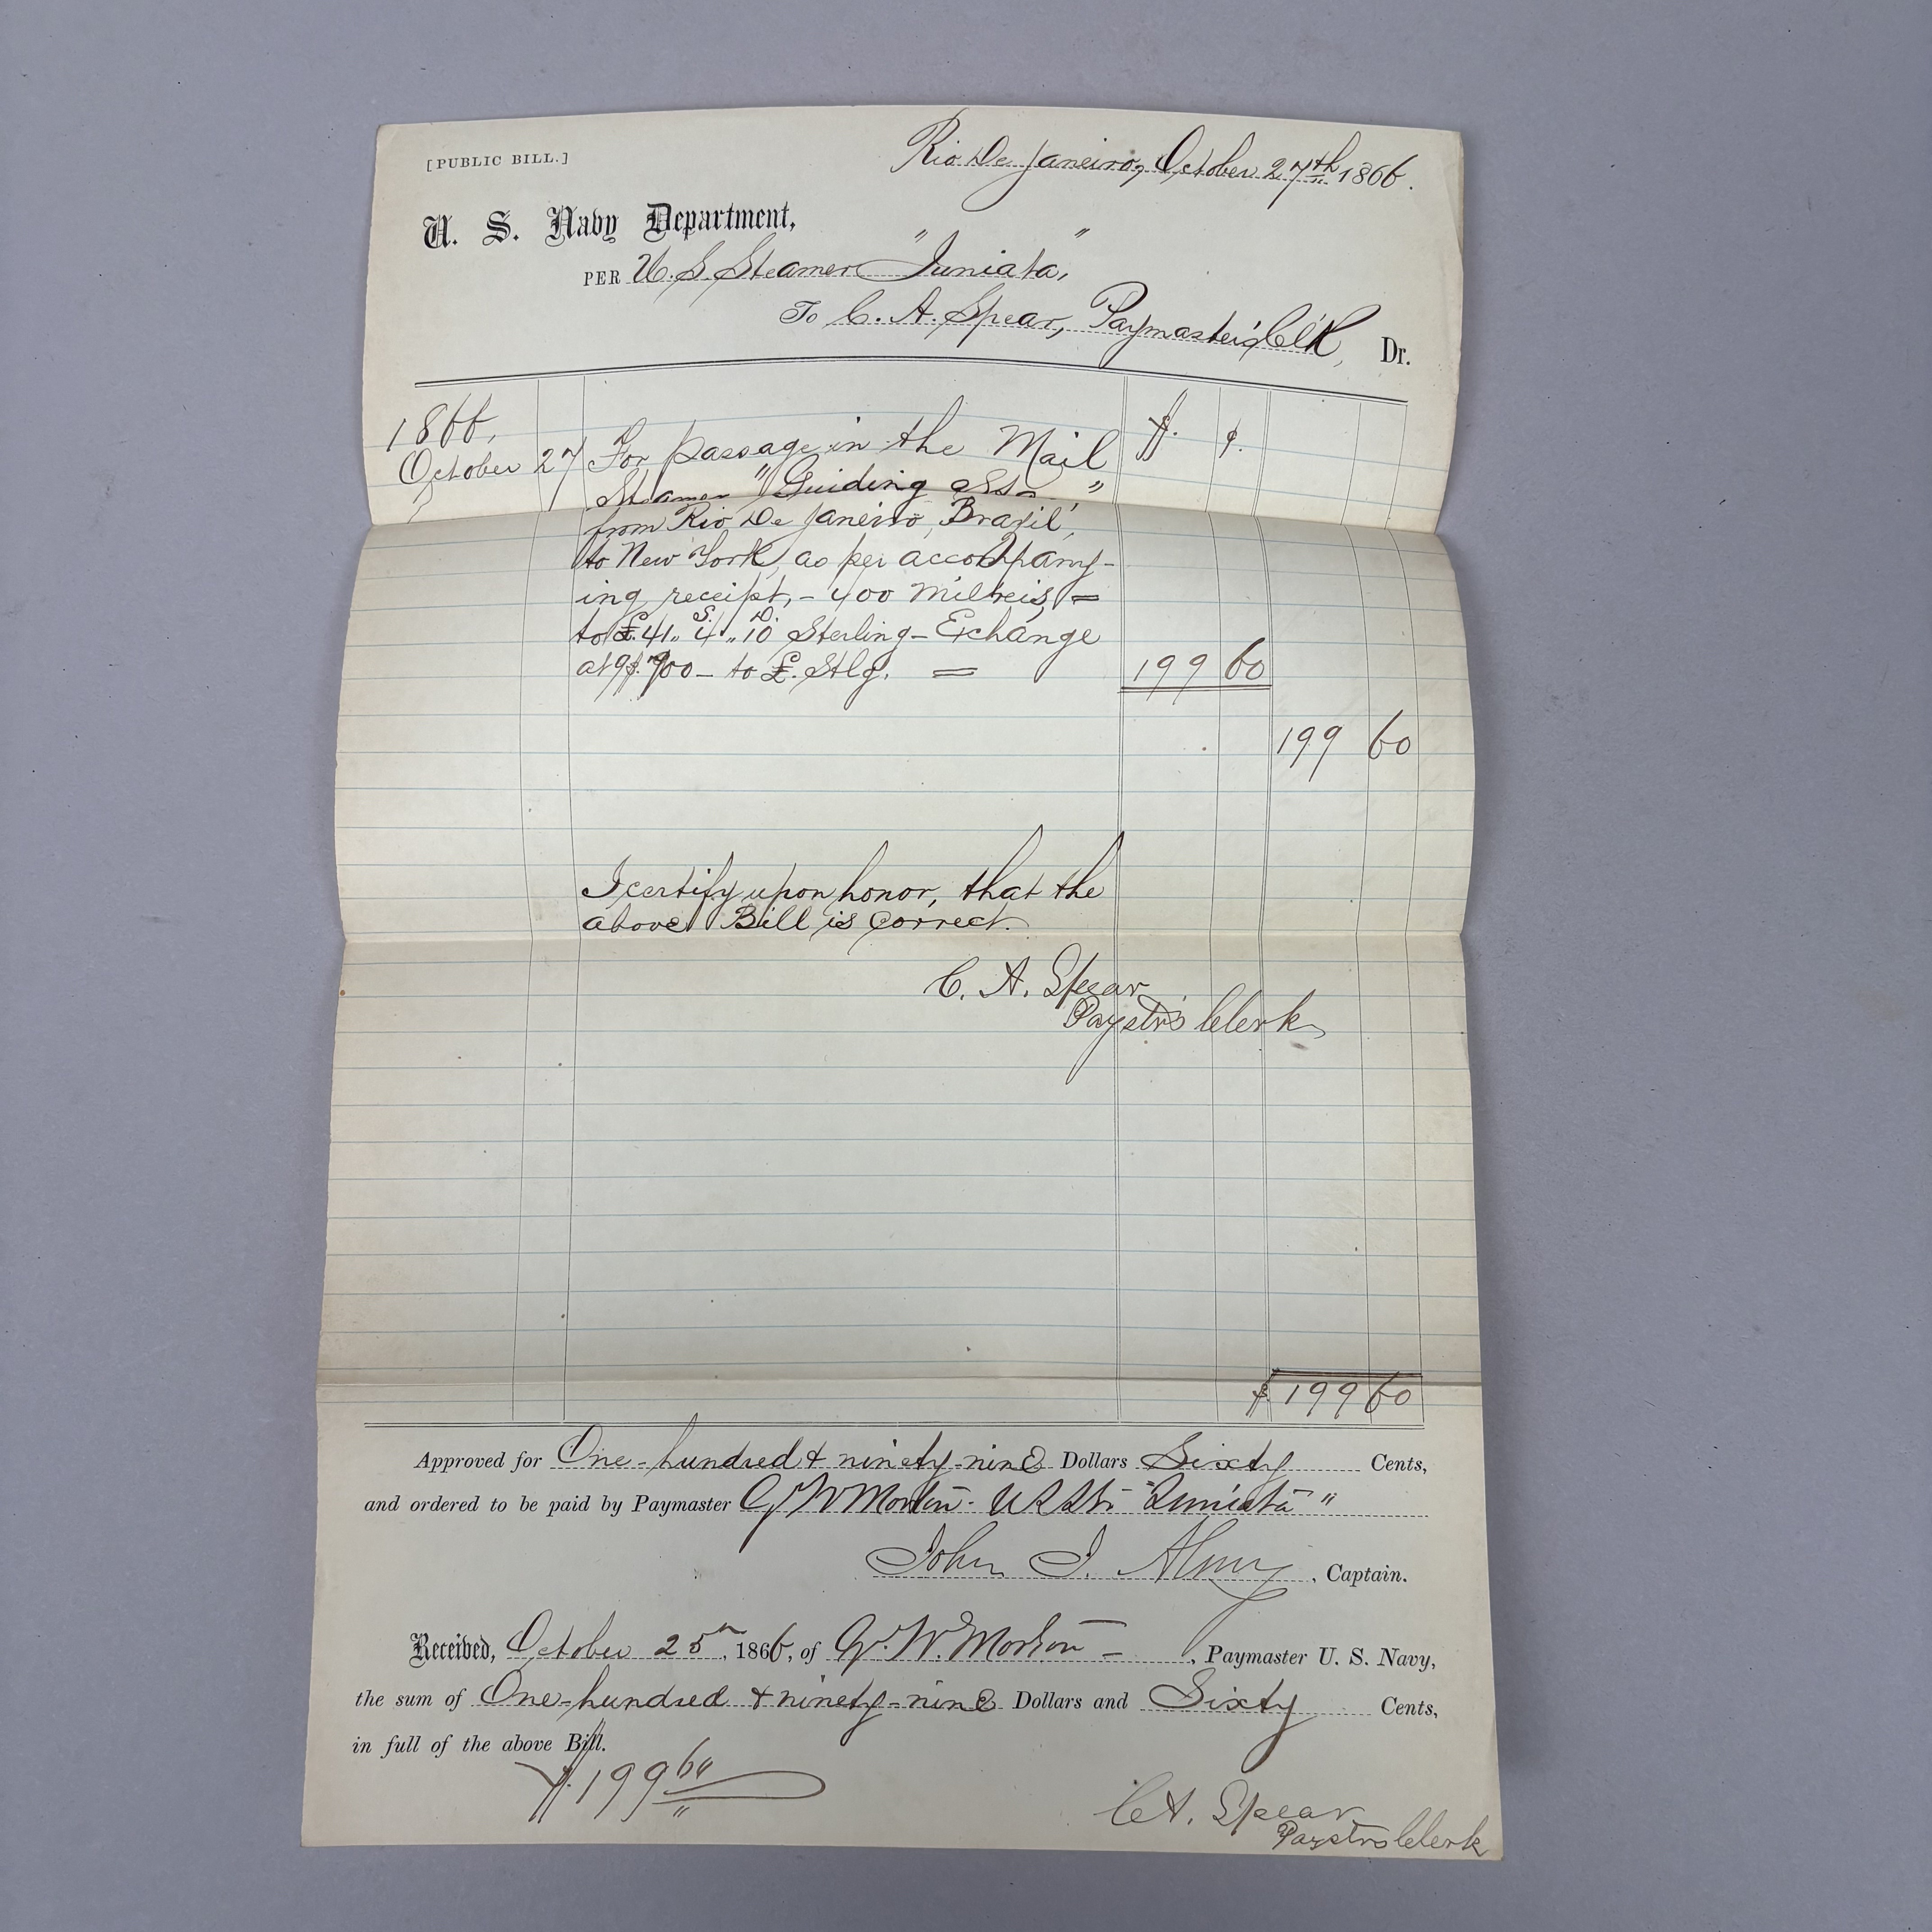 [PUBLIC BILL.]
Rio De Janeiro, October 27th 1866.
U. S. Navy Department,
PER U. S. Steamer "Juniata",
To C. A. Spear, Paymaster's Cl'k, Dr.
1866.
October 27 For passage in the Mail $. ¢.
Steamer "Guiding Star"
from Rio De Janeiro, Brazil,
to New York, as per accompany-
ing receipt, - 400 Milreis, =
to £. 41,, S. 4,, D. 10 Sterling - Exchange
at 9$.700 - to £. Stlg. = 199 60
199 60
I certify upon honor, that the
above Bill is correct.
C. A. Spear
Paystr's Clerk
$. 199 60
Approved for One-hundred & ninety-nine Dollars Sixty Cents,
and ordered to be paid by Paymaster G. W. Morton - USStr "Juniata"
John J. Almy, Captain.
Received, October 25th, 1866, of G. W. Morton -, Paymaster U. S. Navy,
the sum of One-hundred & ninety-nine Dollars and Sixty Cents,
in full of the above Bill.
$. 199 60
C A. Spear
Paystr's Clerk